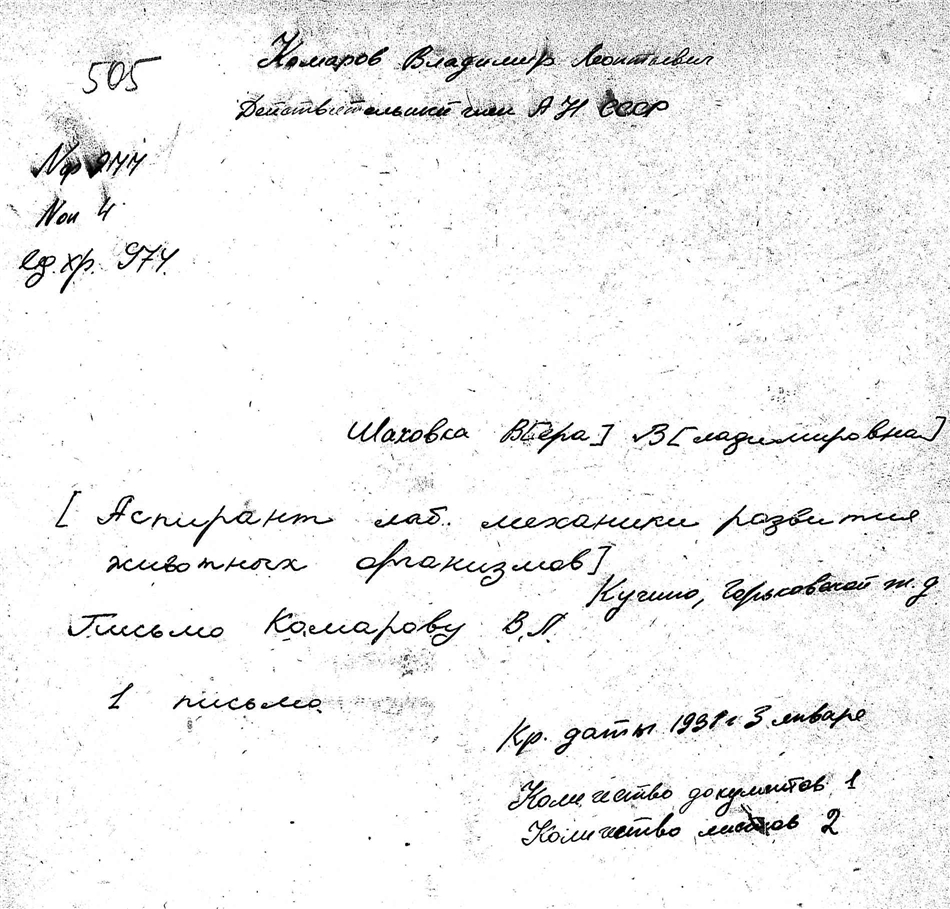 505
Комаров Владимир Леонтьевич
Действительный член АН СССР
№ф 277
№оп 4
ед. хр. 974.
Шаховка В[ера] В[ладимировна]
[Аспирант лаб. механики развития
животных организмов]
Кучино, Горьковской ж.д
Письмо Комарову В.Л.
1 письмо.
Кр. даты 1938 г 3 января
Количество документов 1
Количество листов 2